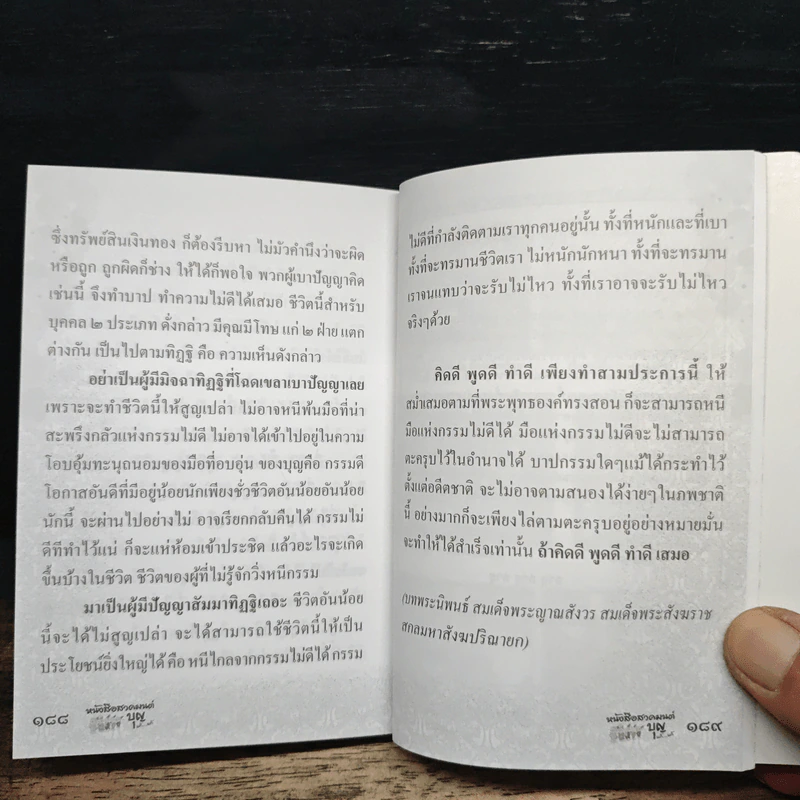 ซึ่งทรัพย์สินเงินทอง ก็ต้องรีบหา ไม่มัวคำนึงว่าจะผิด
หรือถูก ถูกผิดก็ช่าง ให้ได้ก็พอใจ พวกผู้เบาปัญญาคิด
เช่นนี้ จึงทำบาป ทำความไม่ดีได้เสมอ ชีวิตนี้สำหรับ
บุคคล ๒ ประเภท ดั่งกล่าว มีคุณมีโทษ แก่ ๒ ฝ่าย แตก
ต่างกัน เป็นไปตามทิฏฐิ คือ ความเห็นดังกล่าว
อย่าเป็นผู้มีมิจฉาทิฏฐิที่โฉดเขลาเบาปัญญาเลย
เพราะจะทำชีวิตนี้ให้สูญเปล่า ไม่อาจหนีพ้นมือที่น่า
สะพรึงกลัวแห่งกรรมไม่ดี ไม่อาจได้เข้าไปอยู่ในความ
โอบอุ้มทะนุถนอมของมือที่อบอุ่น ของบุญคือ กรรมดี
โอกาสอันดีที่มีอยู่น้อยนักเพียงชั่วชีวิตอันน้อยอันน้อย
นักนี้ จะผ่านไปอย่างไม่ อาจเรียกกลับคืนได้ กรรมไม่
ดีที่ทำไว้แน่ ก็จะแห่ห้อมเข้าประชิด แล้วอะไรจะเกิด
ขึ้นบ้างในชีวิต ชีวิตของผู้ที่ไม่รู้จักวิ่งหนีกรรม
มาเป็นผู้มีปัญญาสัมมาทิฏฐิเถอะ ชีวิตอันน้อย
นี้จะได้ไม่สูญเปล่า จะได้สามารถใช้ชีวิตนี้ให้เป็น
ประโยชน์ยิ่งใหญ่ได้ คือ หนีไกลจากกรรมไม่ดีได้ กรรม
๑๘๘
หนังสือสวดมนต์
บุญ
ไม่ดีที่กำลังติดตามเราทุกคนอยู่นั้น ทั้งที่หนักและที่เบา
ทั้งที่จะทรมานชีวิตเรา ไม่หนักนักหนา ทั้งที่จะทรมาน
เราจนแทบว่าจะรับไม่ไหว ทั้งที่เราอาจจะรับไม่ไหว
จริงๆด้วย
คิดดี พูดดี ทำดี เพียงทำสามประการนี้ ให้
สม่ำเสมอตามที่พระพุทธองค์ทรงสอน ก็จะสามารถหนี
มือแห่งกรรมไม่ดีได้ มือแห่งกรรมไม่ดีจะไม่สามารถ
ตะครุบไว้ในอำนาจได้ บาปกรรมใดๆแม้ได้กระทำไว้
ตั้งแต่อดีตชาติ จะไม่อาจตามสนองได้ง่ายๆในภพชาติ
นี้ อย่างมากก็จะเพียงไล่ตามตะครุบอยู่อย่างหมายมั่น
จะทำให้ได้สำเร็จเท่านั้น ถ้าคิดดี พูดดี ทำดี เสมอ
(บทพระนิพนธ์ สมเด็จพระญาณสังวร สมเด็จพระสังฆราช
สกลมหาสังฆปริณายก)
หนังสือสวดมนต์
บุญ
๑๘๙